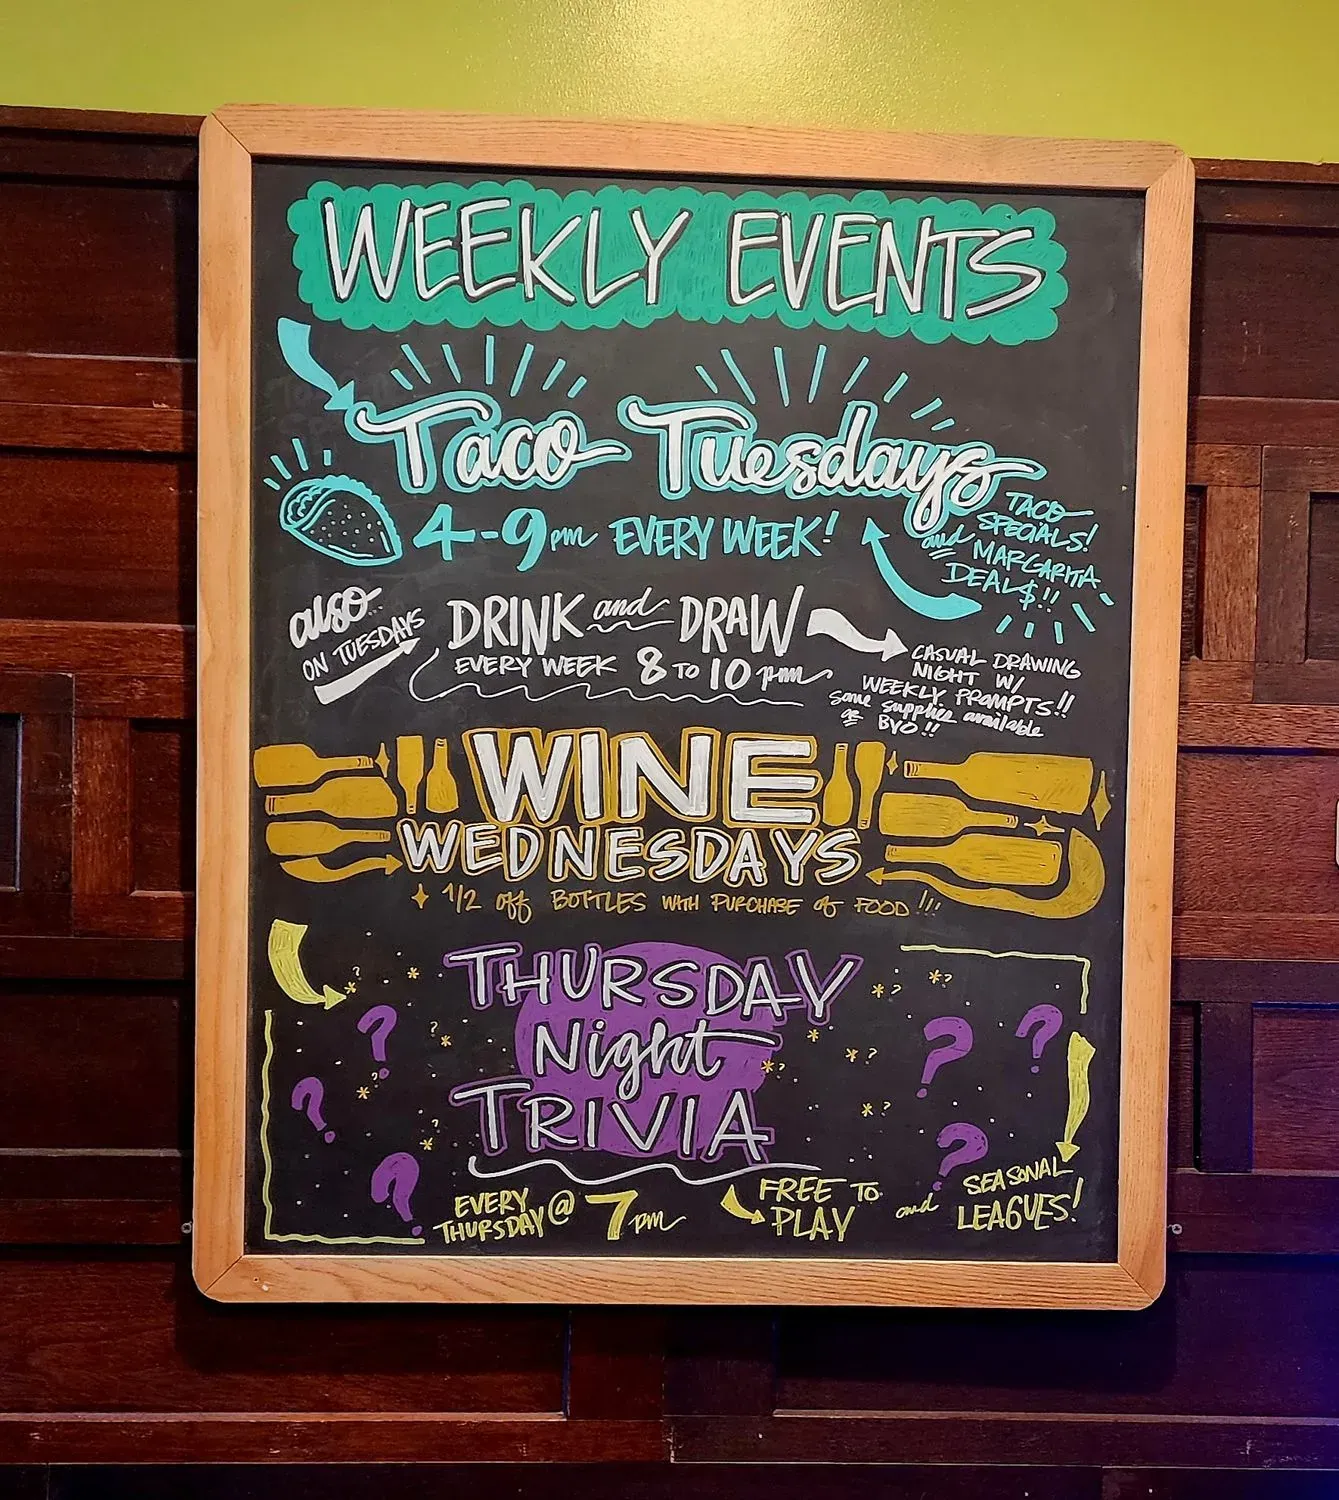 WEEKLY EVENTS
Taco Tuesdays
4-9pm EVERY WEEK!
TACO
SPECIALS!
and MARGARITA
DEAL$!!
also...
ON TUESDAYS
DRINK and DRAW
EVERY WEEK 8 TO 10 pm
CASUAL DRAWING
NIGHT W/
WEEKLY PROMPTS!!
some supplies available
or BYO!!
WINE
WEDNESDAYS
1/2 off BOTTLES WITH PURCHASE of FOOD!!!
THURSDAY
Night
TRIVIA
EVERY
THURSDAY @ 7pm
FREE TO
PLAY
and
SEASONAL
LEAGUES!